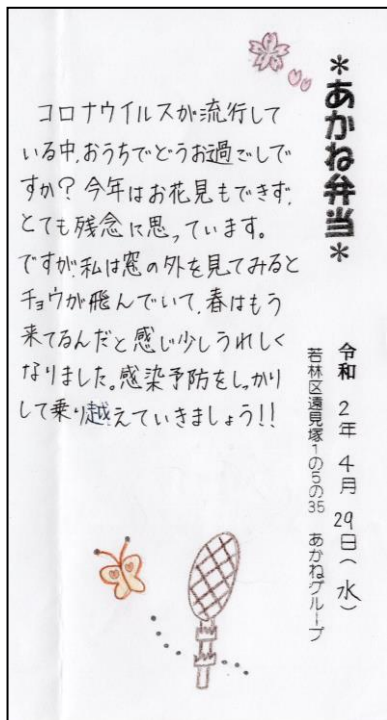 ＊あかね弁当＊
令和 2年 4月 29日（水）
若林区遠見塚1の5の35 あかねグループ
コロナウイルスが流行して
いる中、おうちでどうお過ごしで
すか？今年はお花見もできず、
とても残念に思っています。
ですが、私は窓の外を見てみると
チョウが飛んでいて、春はもう
来てるんだと感じ少しうれしく
なりました。感染予防をしっかり
して乗り越えていきましょう!!